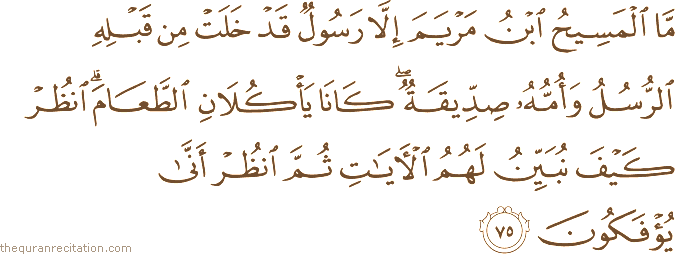 مَّا ٱلْمَسِيحُ ٱبْنُ مَرْيَمَ إِلَّا رَسُولٌ قَدْ خَلَتْ مِن قَبْلِهِ
ٱلرُّسُلُ وَأُمُّهُۥ صِدِّيقَةٌ ۖ كَانَا يَأْكُلَانِ ٱلطَّعَامَ ۗ ٱنظُرْ
كَيْفَ نُبَيِّنُ لَهُمُ ٱلْـَٔايَـٰتِ ثُمَّ ٱنظُرْ أَنَّىٰ
يُؤْفَكُونَ ٧٥
thequranrecitation.com